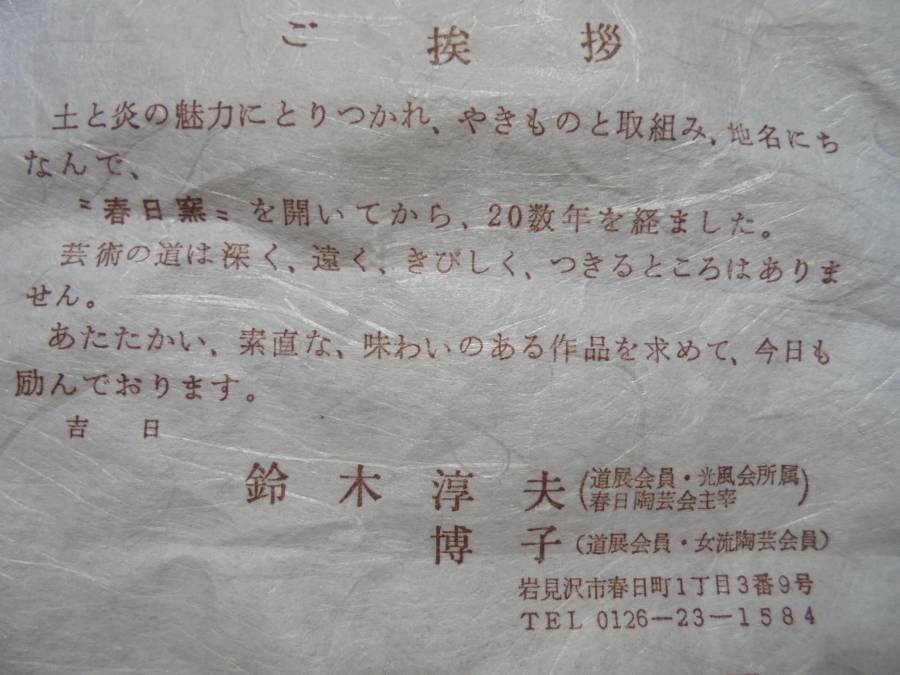 ご挨拶
土と炎の魅力にとりつかれ、やきものと取組み、地名にち
なんで、
〝春日窯〟を開いてから、20数年を経ました。
芸術の道は深く、遠く、きびしく、つきるところはありま
せん。
あたたかい、素直な、味わいのある作品を求めて、今日も
励んでおります。
吉日
鈴木淳夫(道展会員・光風会所属
春日陶芸会主宰)
博子(道展会員・女流陶芸会員)
岩見沢市春日町1丁目3番9号
TEL 0126―23―1584